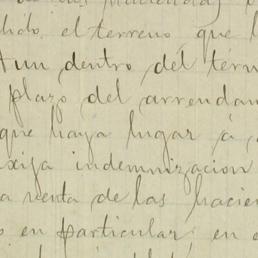 las haciendas
el terreno que
aun dentro del tér
plazo del arrendam
que haya lugar á
exija indemnizacion
a venta de las hacien
en particular; en